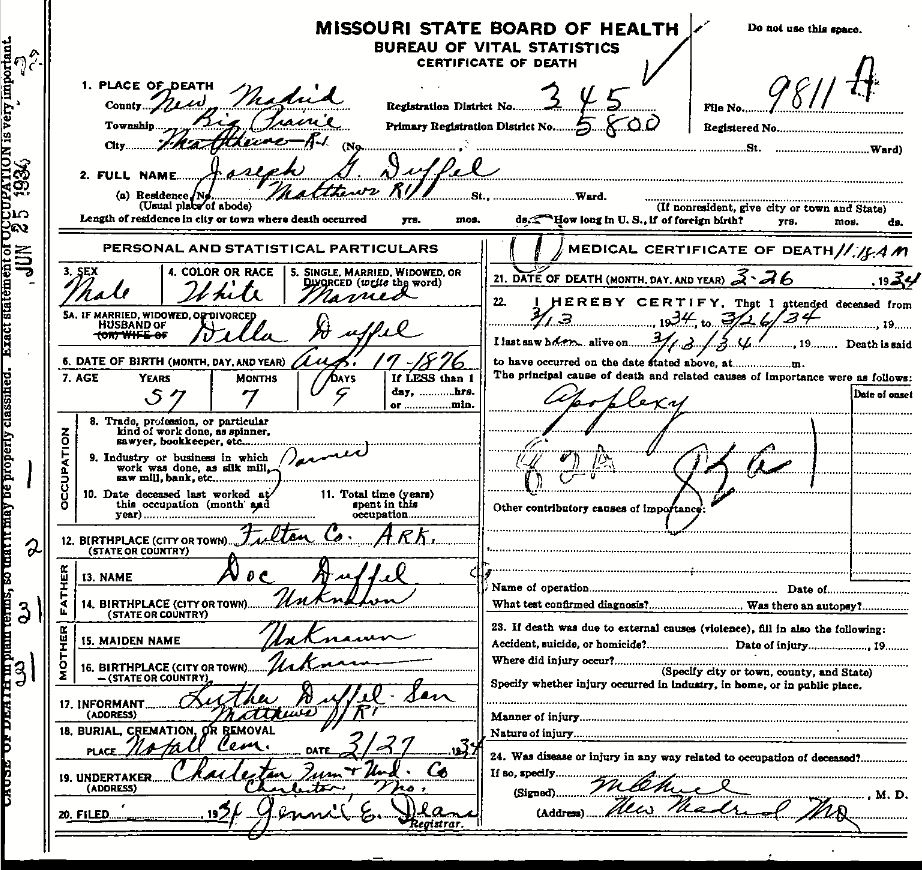 MISSOURI STATE BOARD OF HEALTH
BUREAU OF VITAL STATISTICS
CERTIFICATE OF DEATH
Do not use this space.
1. PLACE OF DEATH
County New Madrid
Registration District No. 345
File No. 9811 A
Township Big Prairie
Primary Registration District No. 5800
Registered No.
City Matthews R1 (No. St. Ward)
2. FULL NAME Joseph G. Duffel
(a) Residence, No. Matthews R1 St., Ward.
(Usual place of abode) (If nonresident, give city or town and State)
Length of residence in city or town where death occurred yrs. mos. ds. How long in U. S., if of foreign birth? yrs. mos. ds.
PERSONAL AND STATISTICAL PARTICULARS
3. SEX
Male
4. COLOR OR RACE
White
5. SINGLE, MARRIED, WIDOWED, OR
DIVORCED (write the word)
Married
5A. IF MARRIED, WIDOWED, OR DIVORCED
HUSBAND OF
(OR) WIFE OF
Della Duffel
6. DATE OF BIRTH (MONTH, DAY, AND YEAR) Aug. 17-1876
7. AGE YEARS MONTHS DAYS If LESS than 1
day, hrs.
or min.
57 7 9
OCCUPATION
8. Trade, profession, or particular
kind of work done, as spinner,
sawyer, bookkeeper, etc.
9. Industry or business in which
work was done, as silk mill,
saw mill, bank, etc.
Farmer
10. Date deceased last worked at
this occupation (month and
year)
11. Total time (years)
spent in this
occupation
12. BIRTHPLACE (CITY OR TOWN) Fulton Co. ARK.
(STATE OR COUNTRY)
FATHER
13. NAME Doc Duffel
14. BIRTHPLACE (CITY OR TOWN) Unknown
(STATE OR COUNTRY)
MOTHER
15. MAIDEN NAME Unknown
16. BIRTHPLACE (CITY OR TOWN) Unknown
(STATE OR COUNTRY)
17. INFORMANT Luther Duffel - Son
(ADDRESS) Matthews R1
18. BURIAL, CREMATION, OR REMOVAL
PLACE Nofall Cem. DATE 3/27 1934
19. UNDERTAKER Charleston Furn & Und. Co
(ADDRESS) Charleston, Mo.
20. FILED 1934 Jennie E. Deane
Registrar.
1 MEDICAL CERTIFICATE OF DEATH 11:18 AM
21. DATE OF DEATH (MONTH, DAY, AND YEAR) 3-26, 1934
22. I HEREBY CERTIFY, That I attended deceased from
3/13, 1934, to 3/26/34, 19
I last saw him alive on 3/13/34, 19 Death is said
to have occurred on the date stated above, at m.
The principal cause of death and related causes of importance were as follows:
Date of onset
Apoplexy
82A
82a
Other contributory causes of importance:
Name of operation Date of
What test confirmed diagnosis? Was there an autopsy?
23. If death was due to external causes (violence), fill in also the following:
Accident, suicide, or homicide? Date of injury, 19
Where did injury occur?
(Specify city or town, county, and State)
Specify whether injury occurred in industry, in home, or in public place.
Manner of injury
Nature of injury
24. Was disease or injury in any way related to occupation of deceased?
If so, specify
(Signed) , M. D.
(Address) New Madrid Mo
CAUSE OF DEATH in plain terms, so that it may be properly classified. Exact statement of OCCUPATION is very important.
JUN 25 1934
1
2